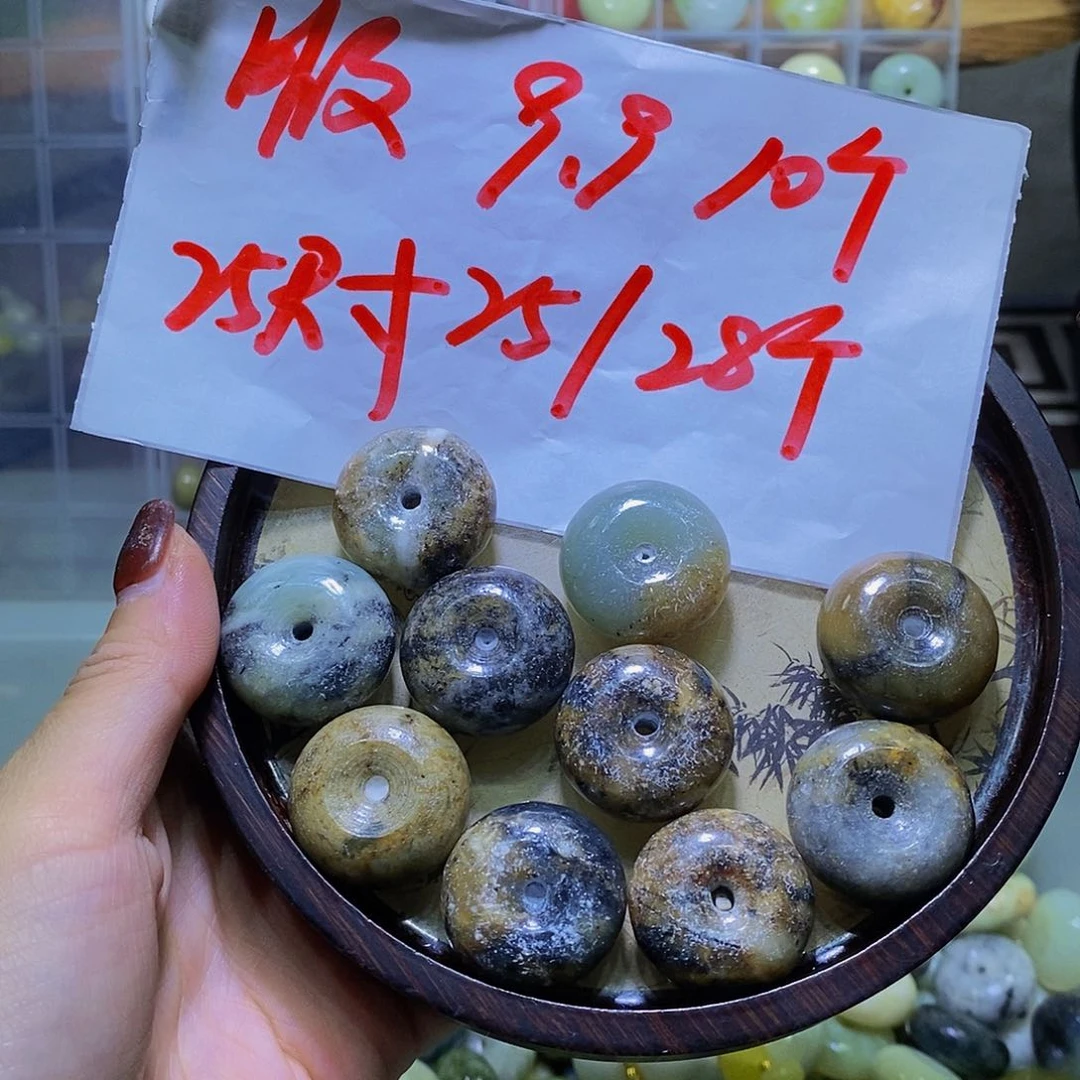 9.9 10个
25尺寸25/28个